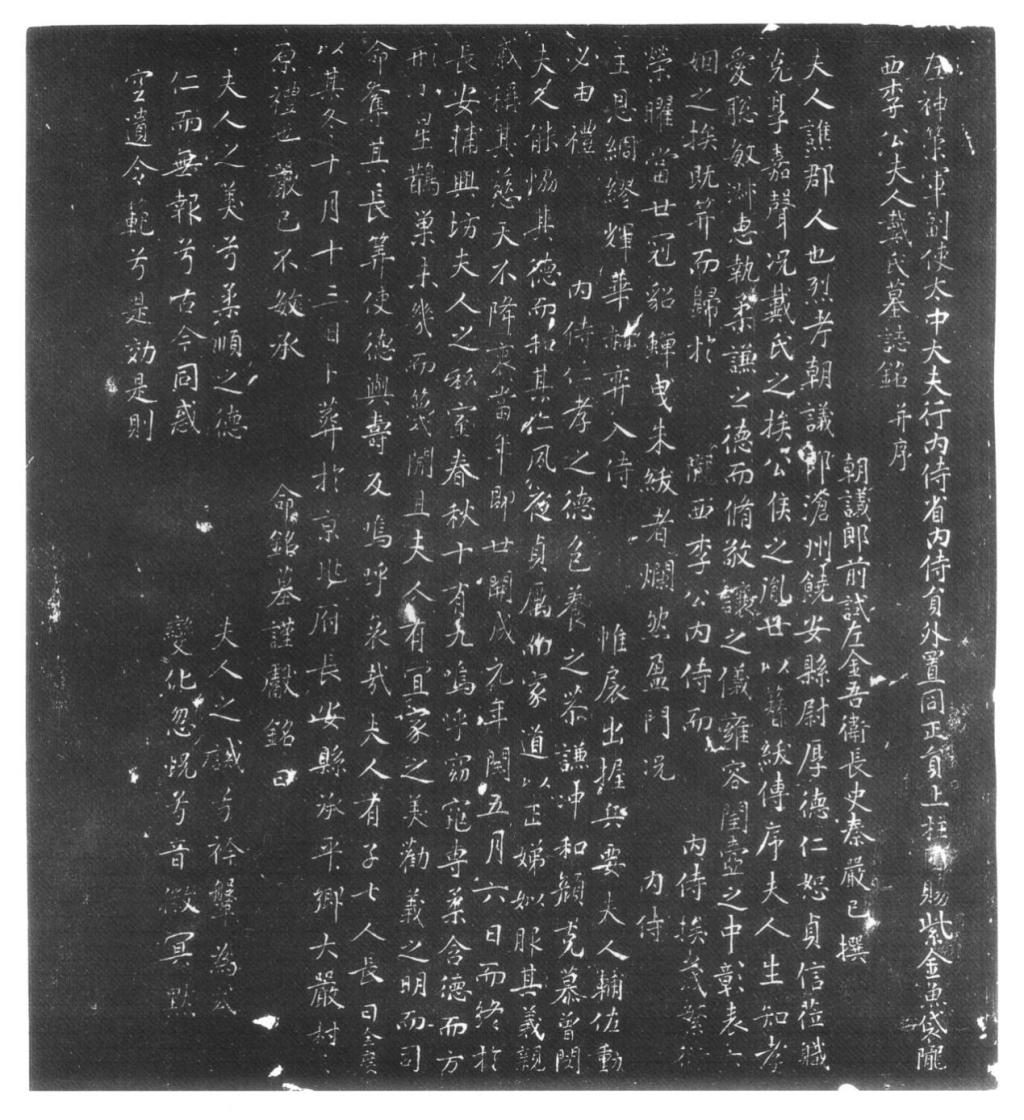 左神策軍副使太中大夫行內侍省內侍貟外置同正貟上柱國賜紫金魚袋隴
西李公夫人戴氏墓誌銘 并序
朝議郎前試左金吾衛長史秦巖已撰
夫人譙郡人也烈考朝議郎滄州饒安縣尉厚德仁恕貞信莅職
克享嘉聲況戴氏之族公侯之胤世以簪紱傳序夫人生知孝
愛聡敏淋恵執柔謙之德而脩敬讓之儀雍容閨壼之中彰表六
姻之族旣笄而歸於 隴西李公內侍而 內侍族茂繁衍
榮曜當世冠貂蟬曳朱紱者爛然盈門况 內侍
主恩綢繆輝華赫弈入侍 帷扆出握兵要夫人輔佐動
必由禮 內侍仁孝之德色養之恭謙沖和顏克慕曾閔
夫人能恊其德而和其仁夙夜貞厲而家道以正娣姒服其義親
戚稱其慈天不降衷當年即世開成元年閏五月六日而終於
長安輔興坊夫人之私室春秋十有九嗚呼窈窕專柔含德而方
刑小星鵲巢未幾而 閒且夫人有宜家之美勸義之明而司
命奪其長筭使德與壽反嗚呼哀哉夫人有子七人長曰全慶
以其冬十月十三日卜葬於京兆府長安縣承平鄉大嚴村
原禮也巖已不敏承 命銘墓謹獻銘曰
夫人之美兮柔順之德 夫人之誡兮衿鞶為
仁而無報兮古今同惑 變化忽怳兮音徽冥默
空遺令範兮是効是則